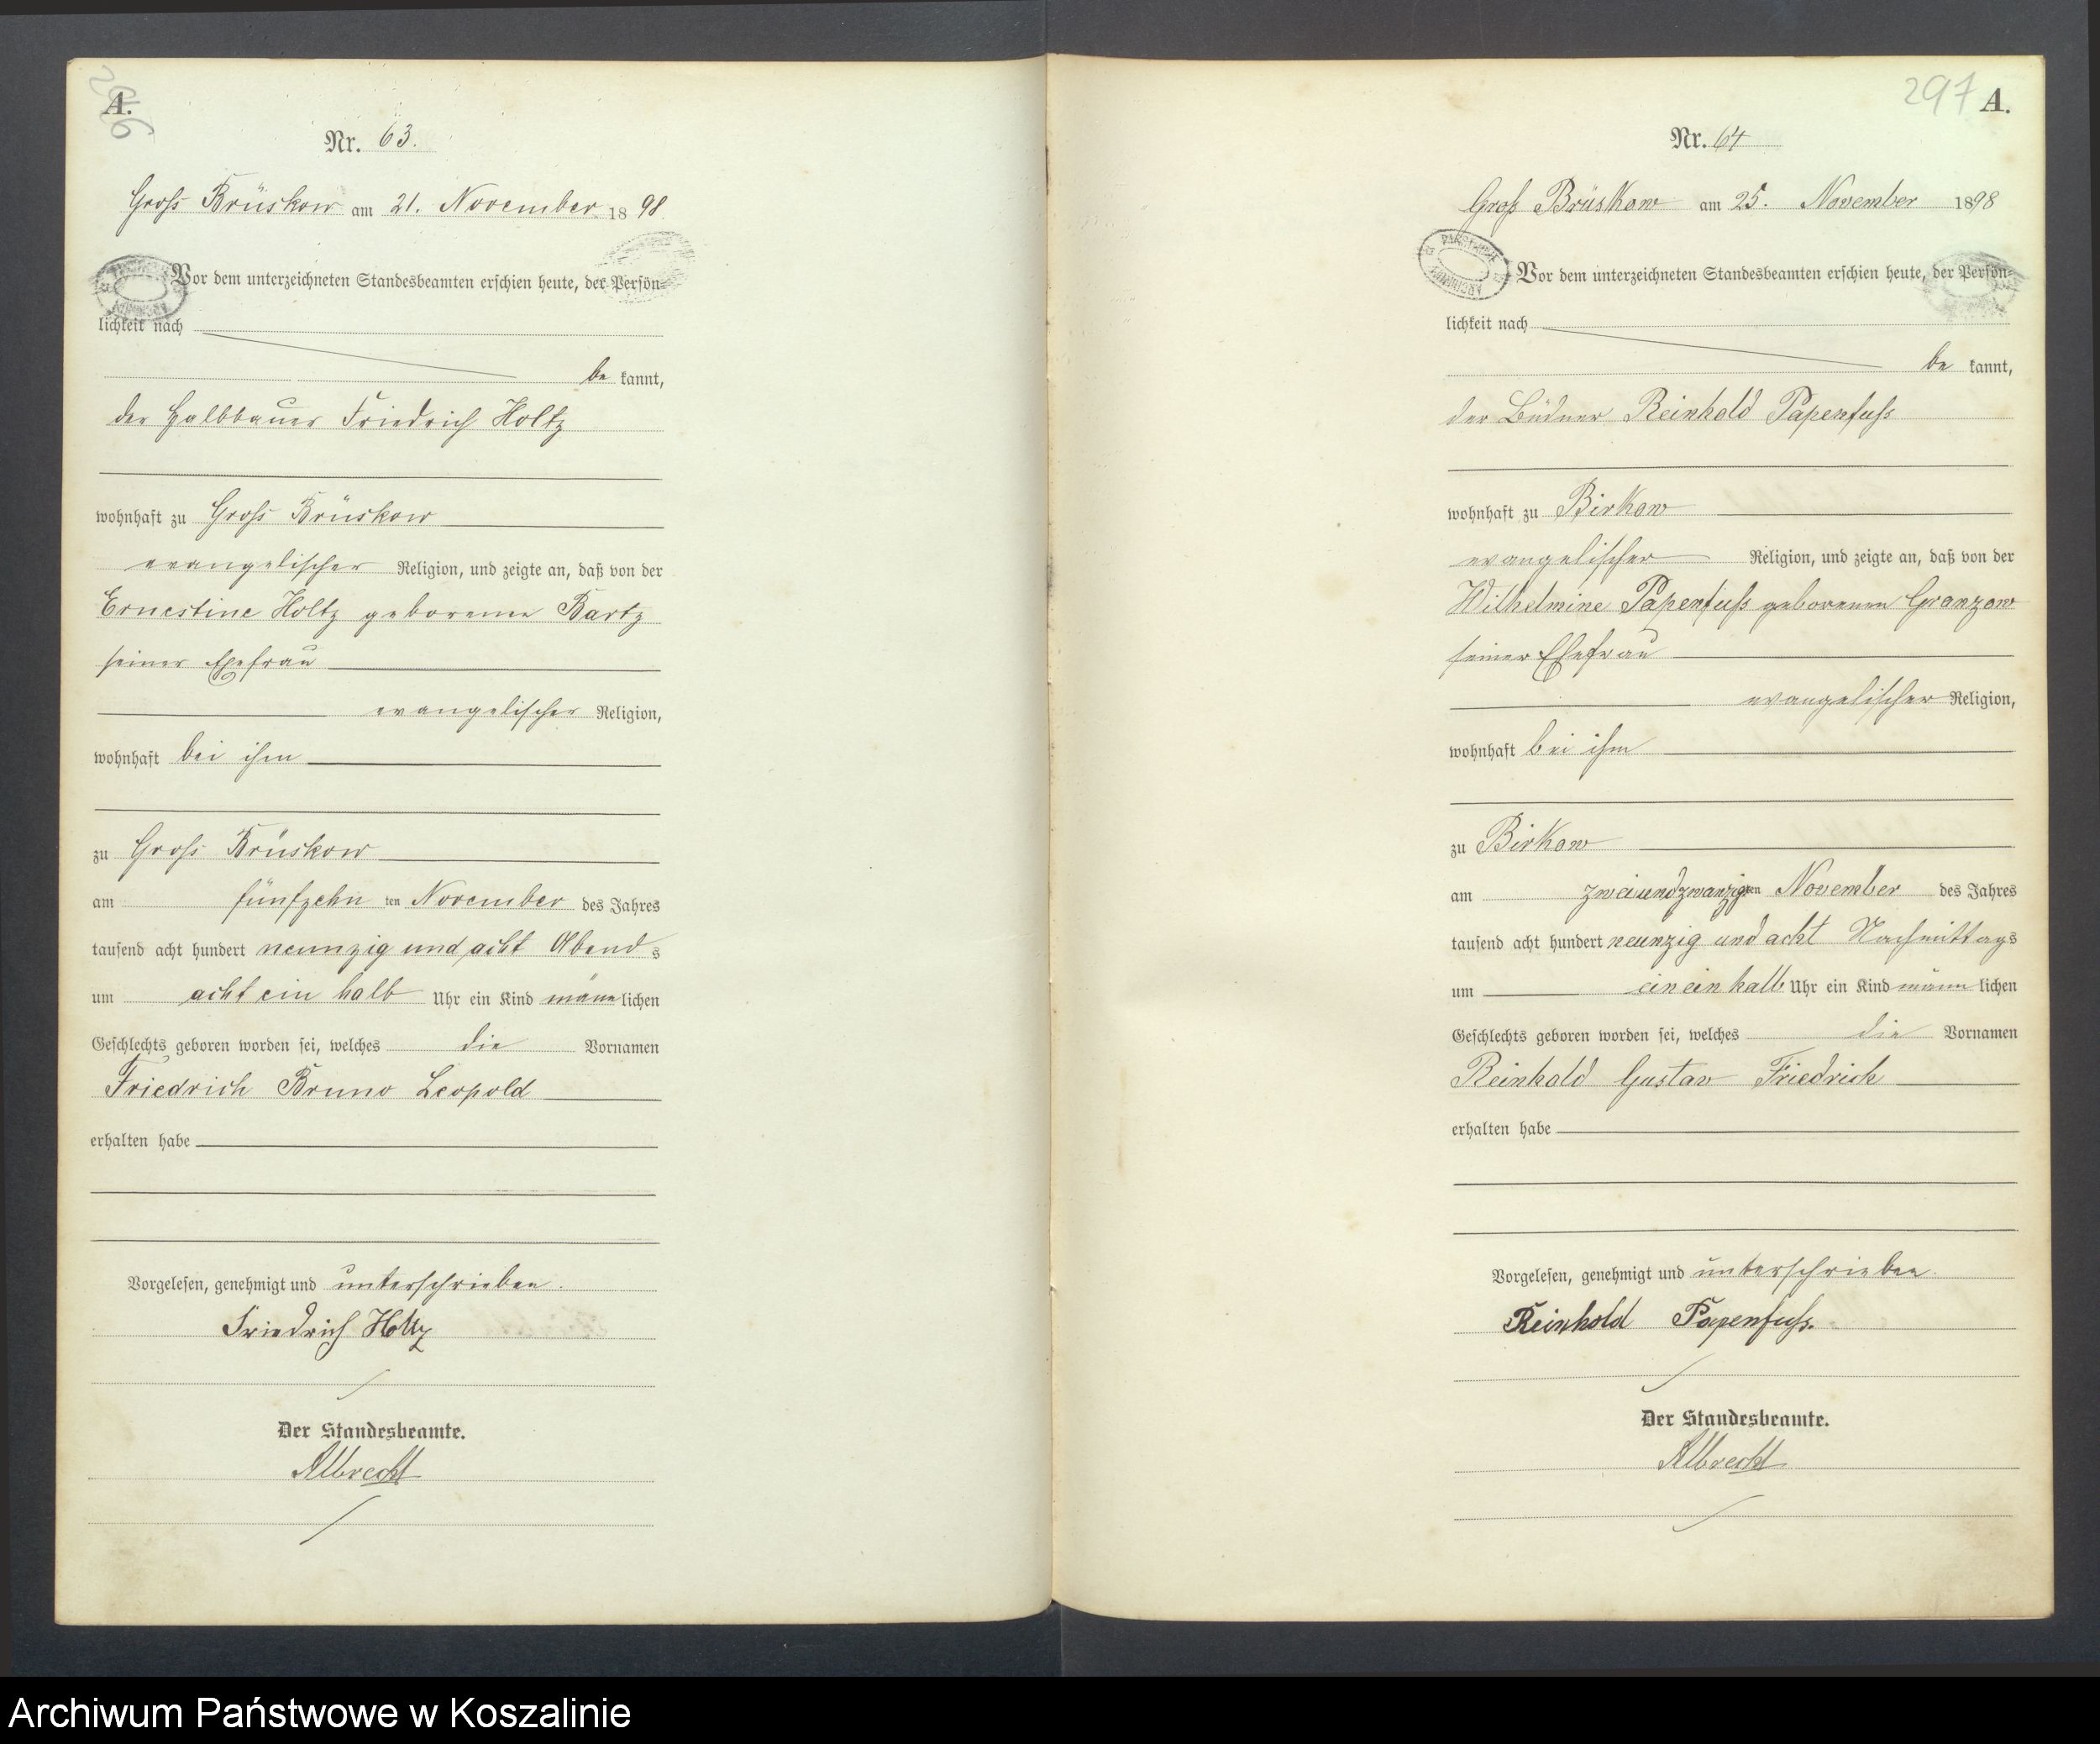 A.
296
Nr. 63.
Gross Brüskow am 21. November 1898
Vor dem unterzeichneten Standesbeamten erschien heute, der Persön-
lichkeit nach
be kannt,
der Halbbauer Friedrich Holtz
wohnhaft zu Gross Brüskow
evangelischer Religion, und zeigte an, daß von der
Ernestine Holtz geborenen Bartz
seiner Ehefrau
evangelischer Religion,
wohnhaft bei ihm
zu Gross Brüskow
am fünfzehn ten November des Jahres
tausend acht hundert neunzig und acht Abend s
um acht ein halb Uhr ein Kind männlichen
Geschlechts geboren worden sei, welches die Vornamen
Friedrich Bruno Leopold
erhalten habe
Vorgelesen, genehmigt und unterschrieben.
Friedrich Holtz
Der Standesbeamte.
Albrecht
297 A.
Nr. 64
Groß Brüskow am 25. November 1898
Vor dem unterzeichneten Standesbeamten erschien heute, der Persön-
lichkeit nach
be kannt,
der Büdner Reinhold Papenfuss
wohnhaft zu Birkow
evangelischer Religion, und zeigte an, daß von der
Wilhelmine Papenfuß geborenen Granzow
seiner Ehefrau
evangelischer Religion,
wohnhaft bei ihm
zu Birkow
am zweiundzwanzigsten November des Jahres
tausend acht hundert neunzig und acht Nachmittags
um ein ein halb Uhr ein Kind männlichen
Geschlechts geboren worden sei, welches die Vornamen
Reinhold Gustav Friedrich
erhalten habe
Vorgelesen, genehmigt und unterschrieben.
Reinhold Papenfuss.
Der Standesbeamte.
Albrecht
Archiwum Państwowe w Koszalinie